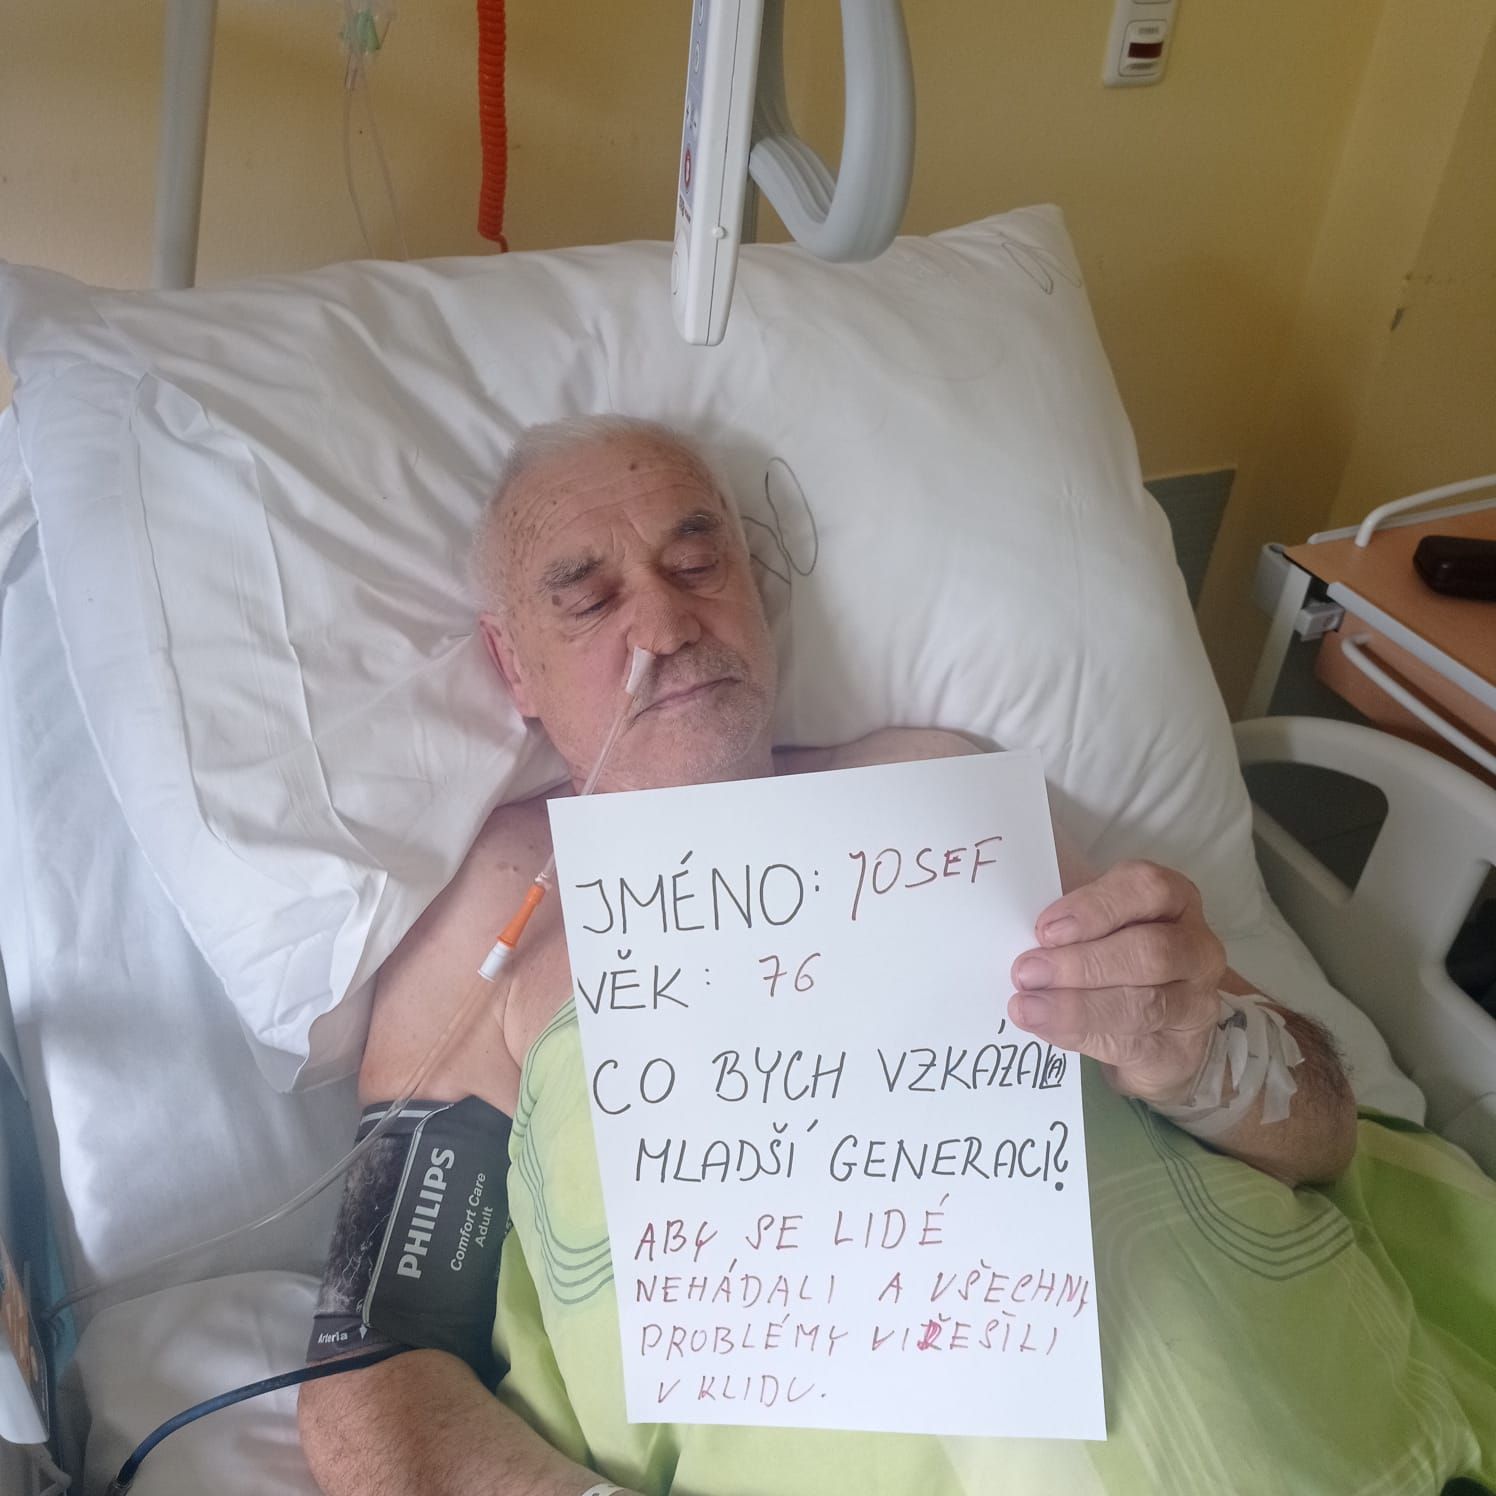 JMÉNO: JOSEF
VĚK: 76
CO BYCH VZKÁZAL(A)
MLADŠÍ GENERACI?
ABY SE LIDÉ
NEHÁDALI A VŠECHNY
PROBLÉMY VIŘEŠILI
V KLIDU.
PHILIPS
Comfort Care
Adult
Arteria